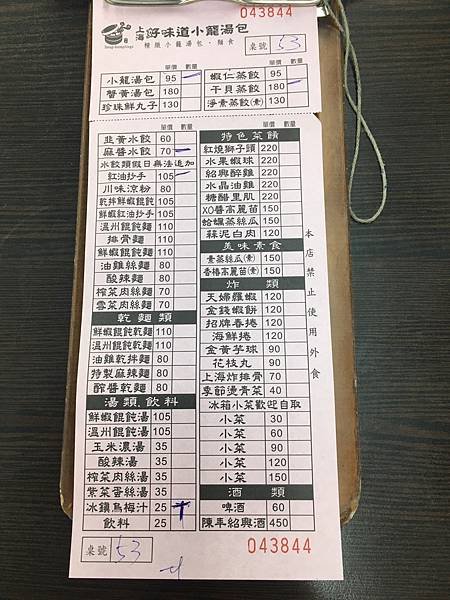 043844
上海 好味道小龍湯包
Soup dumplings
精緻小籠湯包‧麵食
桌號 53
單價 數量 單價 數量
小龍湯包 95 蝦仁蒸餃 95
蟹黃湯包 180 干貝蒸餃 180
珍珠鮮丸子 130 淨素蒸餃(素) 130
單價 數量
韭黃水餃 60
麻醬水餃 70
水餃類假日無法追加
紅油抄手 105
川味涼粉 80
乾拌鮮蝦餛飩 105
鮮蝦紅油抄手 105
溫州餛飩麵 110
排骨麵 110
鮮蝦餛飩麵 110
油雞絲麵 80
酸辣麵 80
榨菜肉絲麵 80
雪菜肉絲麵 80
乾麵類
鮮蝦餛飩乾麵 110
溫州餛飩乾麵 110
油雞乾拌麵 80
特製麻辣麵 80
酢醬乾麵 80
湯類.飲料
鮮蝦餛飩湯 105
溫州餛飩湯 105
玉米濃湯 35
酸辣湯 35
榨菜肉絲湯 35
紫菜蛋絲湯 35
冰鎮烏梅汁 25
飲料 25
單價 數量
特色菜餚
紅燒獅子頭 220
水果蝦球 220
紹興醉雞 220
水晶油雞 220
糖醋里肌 220
XO醬高麗苗 150
蛤蠣蒸絲瓜 150
蒜泥白肉 120
美味素食
素蒸絲瓜(素) 150
香椿高麗苗(素) 150
炸類
天婦羅蝦 120
金錢蝦餅 120
招牌春捲 120
海鮮捲 120
金黃芋球 90
花枝丸 90
上海炸排骨 70
季節燙青菜 40
冰箱小菜歡迎自取
小菜 30
小菜 60
小菜 90
小菜 120
小菜 150
酒類
啤酒 60
陳年紹興酒 450
本店禁止使用外食
桌號 53
043844